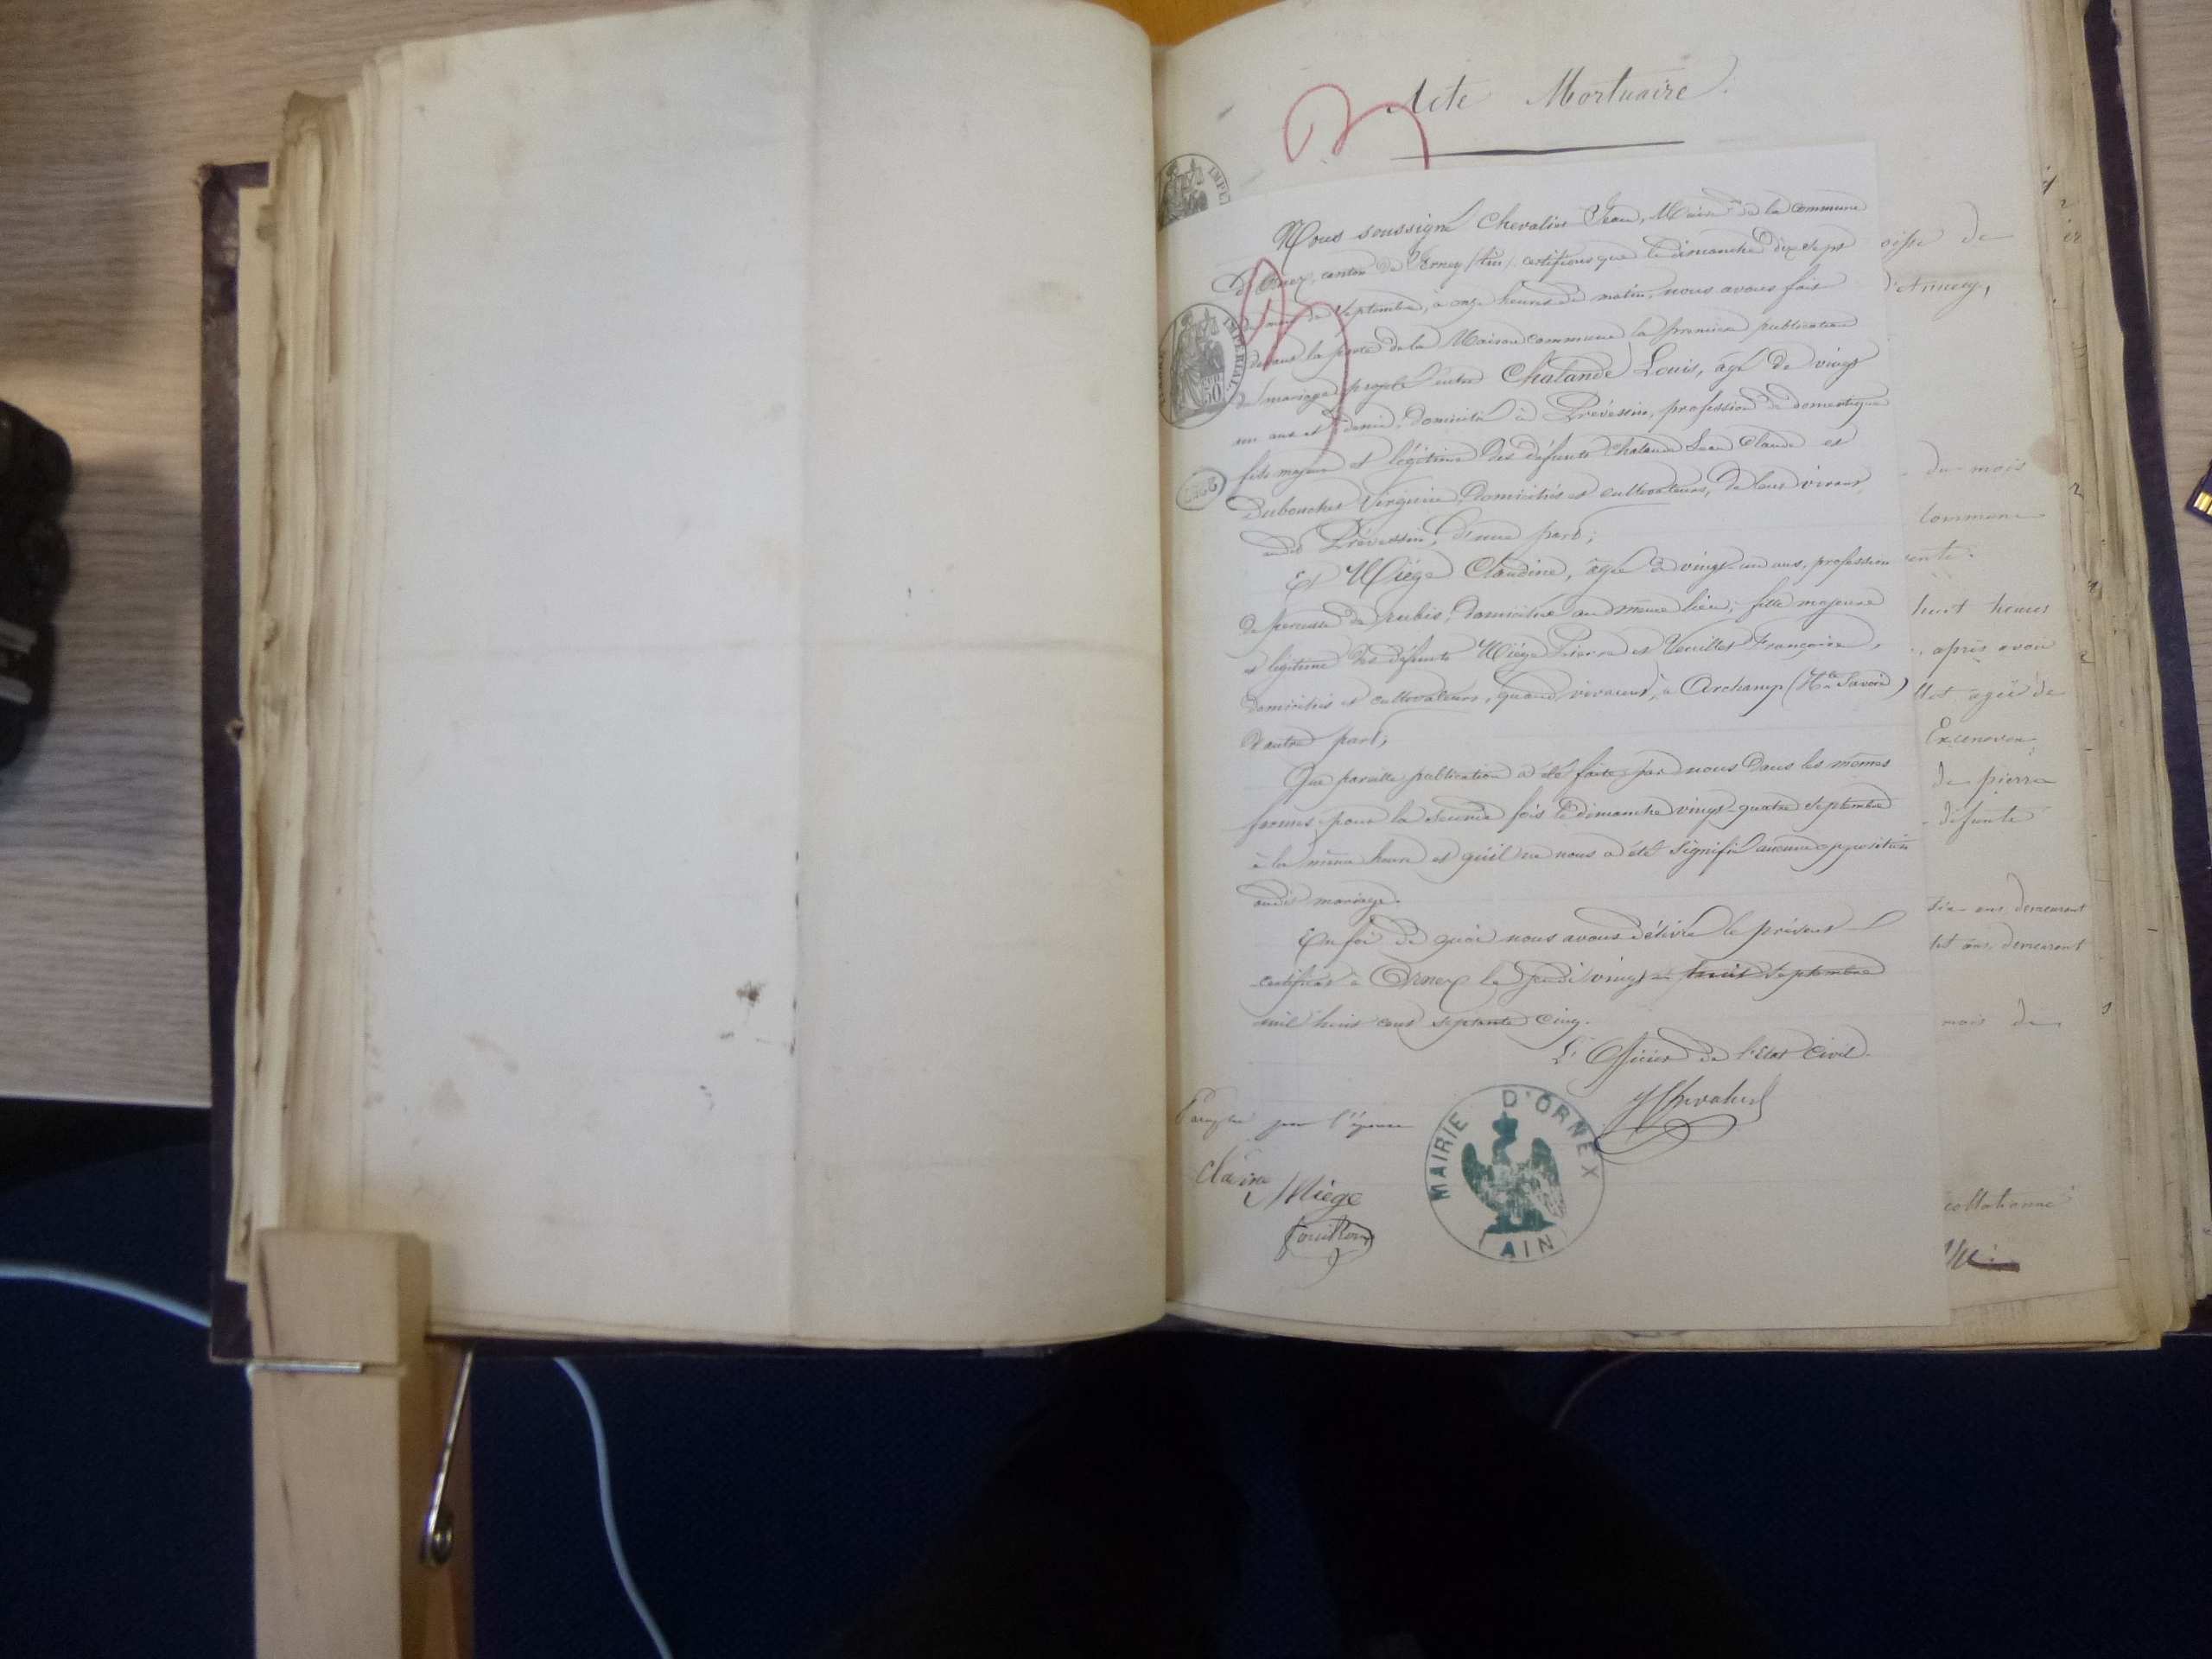 Acte Mortuaire.
Nous soussigné Chevalier Jean, Maire de la commune
d'Ornex, canton de Ferney (Ain) certifions que le dimanche dix sept
du mois de Septembre, à onze heures du matin, nous avons fait
devant la porte de la Maison commune la première publication
du mariage projeté entre Chalande Louis, âgé de vingt
un ans et demi, domicilié à Prévessin, profession de domestique
fils majeur et légitime des défunts Chalande Jean Claude et
Dubouchet Virginie, domiciliés et cultivateurs, de leur vivant
audit Prévessin, d'une part;
Et Miège Claudine, âgée de vingt-un ans, profession
de perceuse de rubis, domiciliée au même lieu, fille majeure
et légitime des défunts Miège Pierre et Vuillet Françoise,
domiciliés et cultivateurs, quand vivaient, à Archamp (Hte Savoie)
d'autre part;
Que pareille publication a été faite par nous dans les mêmes
formes pour la seconde fois le dimanche vingt-quatre septembre
à la même heure et qu'il ne nous a été signifié aucune opposition
audit mariage.
En foi de quoi nous avons délivré le présent
certificat à Ornex le jeudi vingt-huit septembre
mil huit cent septante cinq.
L'Officier de l'Etat Civil.
J Chevalier
pour l'épouse
Miège
MAIRIE D'ORNEX
AIN
IMPERIAL
50
oisse de
d'Annecy,
du mois
Commune
huit heures
après avoir
llet âgée de
Excenevex
de pierre
défunte
six ans, demeurant
ans, demeurant
mois de
collationné